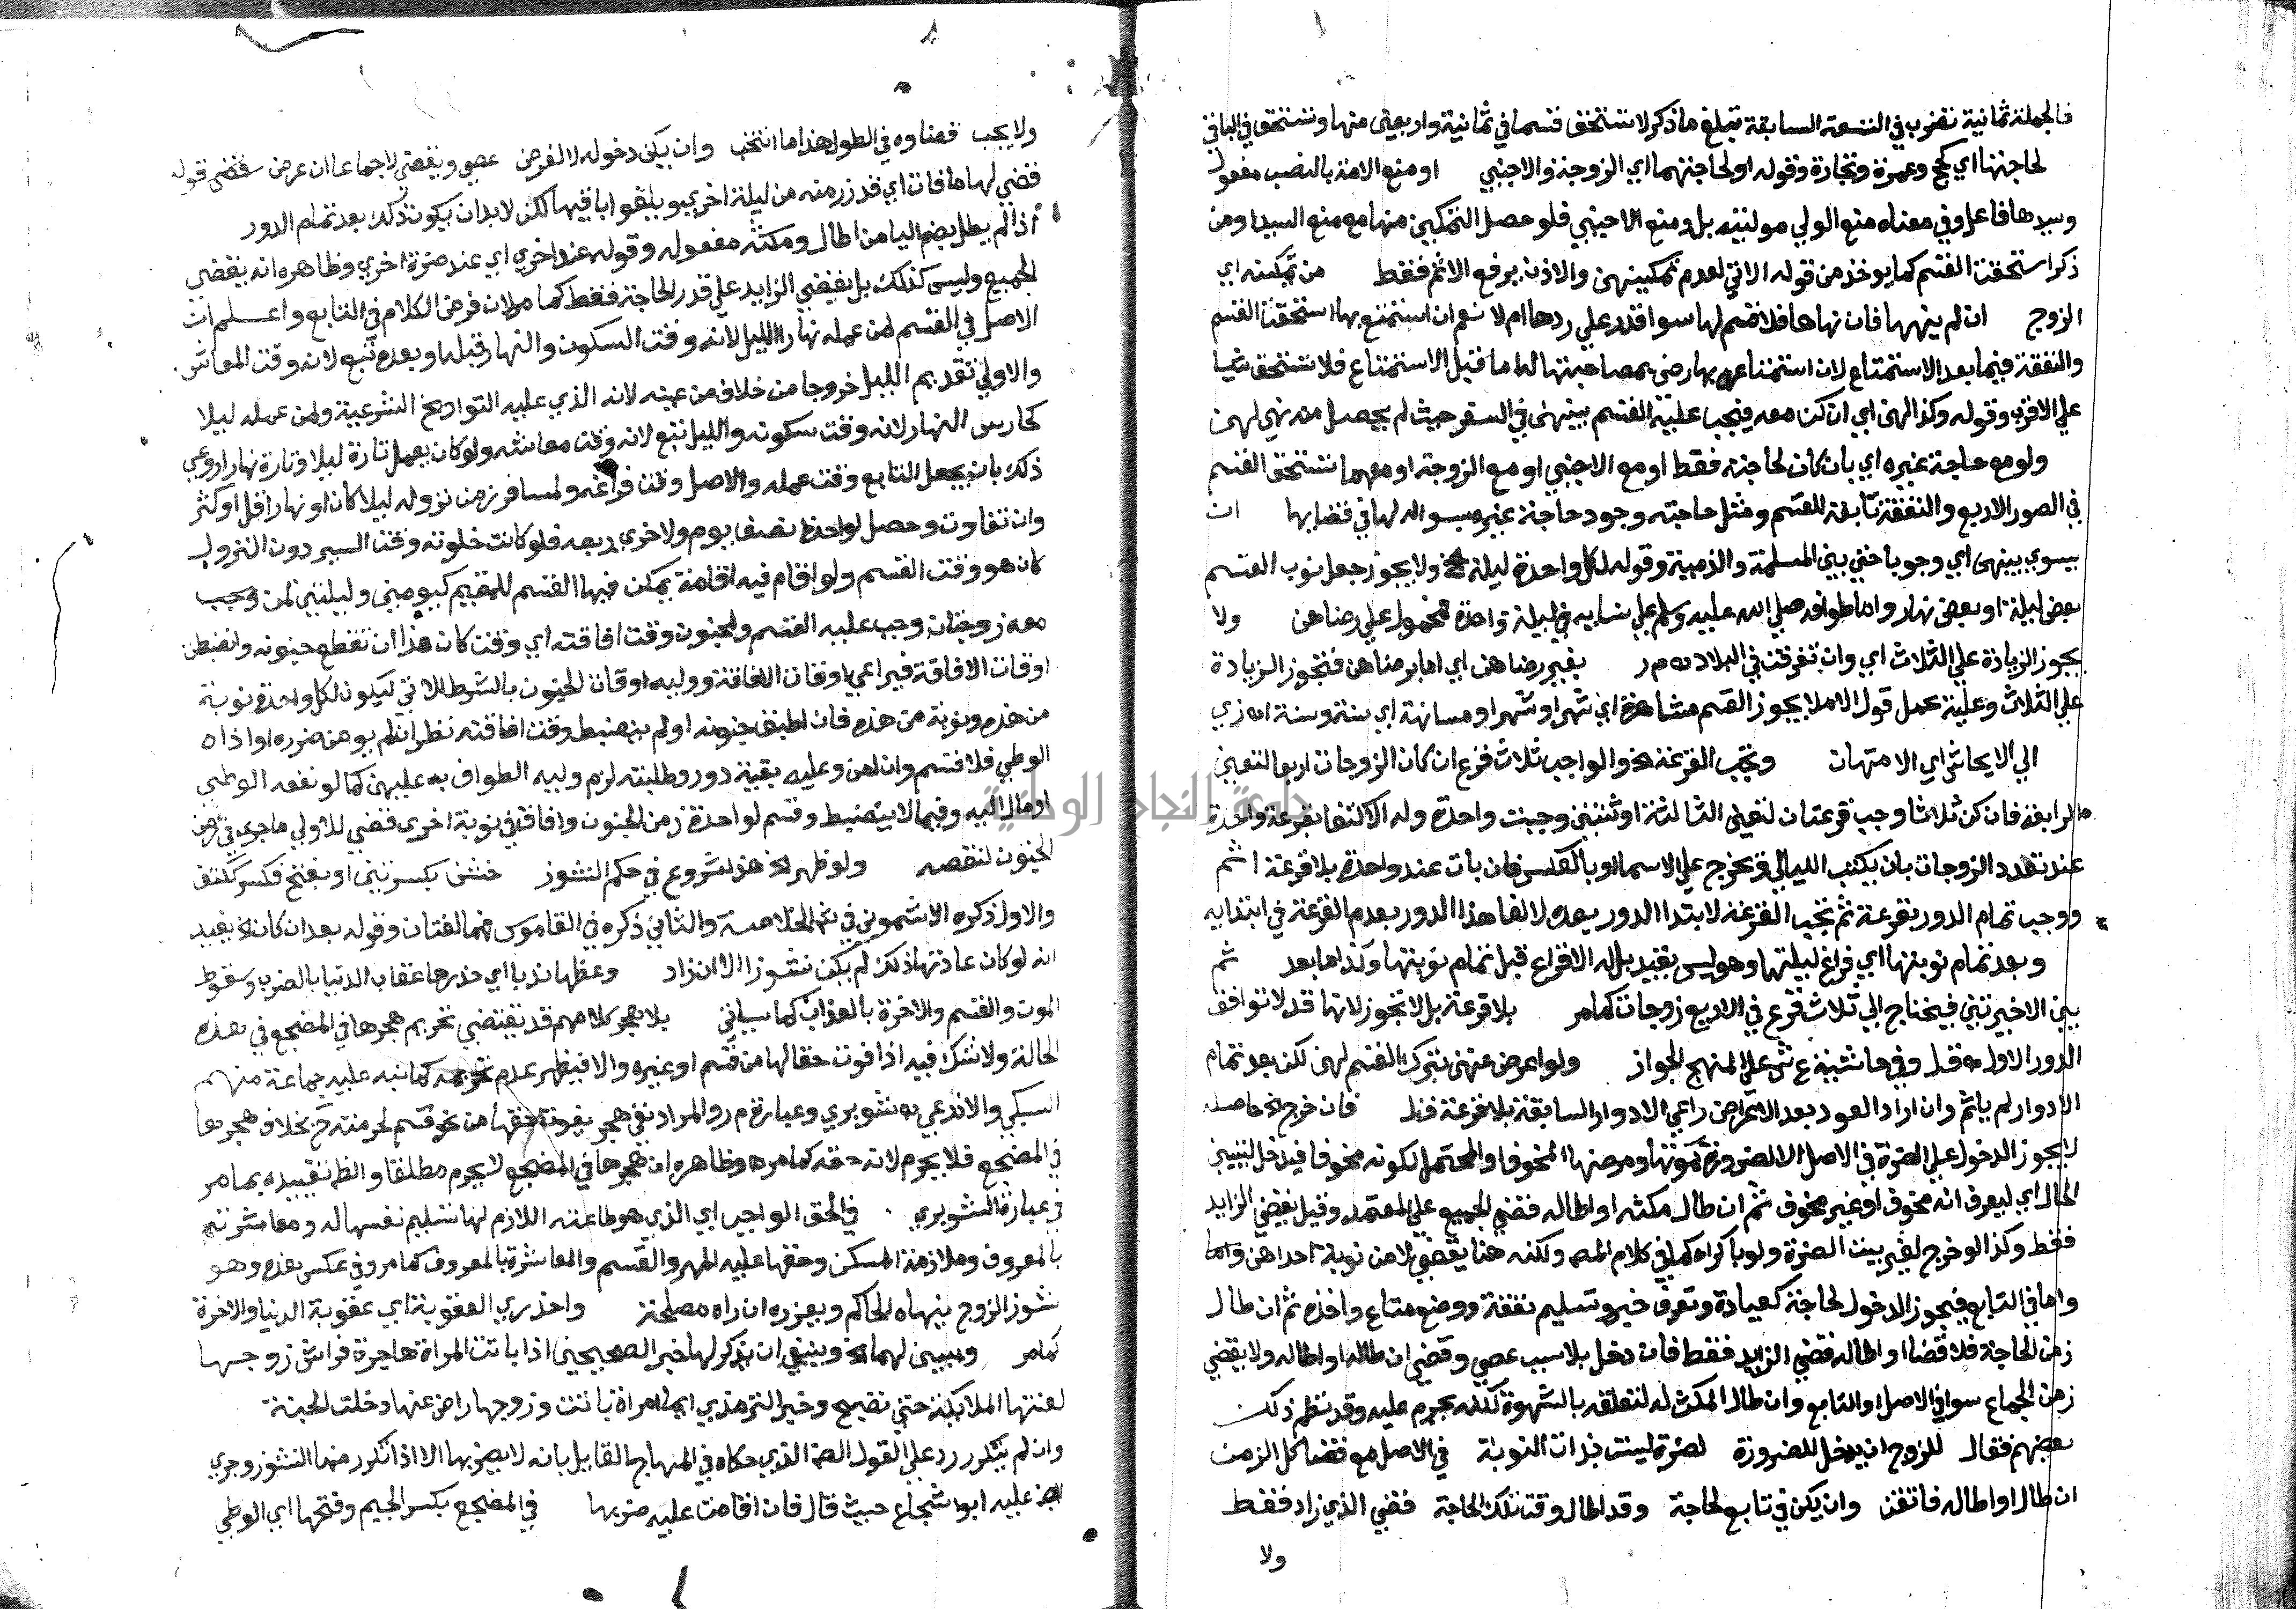 فالجملة ثمانية تضرب في التسعة السابقة تبلغ ما ذكر لا تستحق قسما في ثمانية واربعين منها وتستحق في الباقي
لحاجتها اي كحج وعمرة وتجارة وقوله او لحاجتهما اي الزوجة والاجنبي او منع الامة بالنصب مفعول
وسيدها فاعل وفي معناه منع الولي موليته بل ومنع الاجنبي فلو حصل التمكين منها مع منع السيد او من
ذكر استحقت القسم كما يوخذ من قوله الاتي لعدم تمكينهن والاذن يرفع الاثم فقط من تمكينه اي
الزوج ان لم ينهها فان نهاها فلا قسم لها سوا قدر علي ردها ام لا نعم ان استمتع بها استحقت القسم
والنفقة فيما بعد الاستمتاع لان استمتاعه بها رضي بمصاحبتها له اما قبل الاستمتاع فلا تستحق شيا
علي الاقرب وقوله وكذا لهن اي ان كن معه فيجب عليه القسم بينهن في السفر حيث لم يحصل منه نهي لهن
ولو مع حاجة غيره اي بان كان لحاجته فقط او مع الاجنبي او مع الزوجة او معهما تستحق القسم
في الصور الاربع والنفقة تابعة للقسم ومثل حاجته وجود حاجة غيره بسواله لها في قضايها ان
يسوي بينهن اي وجوبا حتي بين المسلمة والذمية وقوله لكل واحدة ليلة الخ ولا يجوز جعل نوب القسم
بعض ليلة او بعض نهار واما طوافه صلي الله عليه وسلم علي نسايه في ليلة واحدة فمحمول علي رضاهن ولا
يجوز الزيادة علي الثلاث اي وان تفرقت في البلاد م ر بغير رضاهن اي اما برضاهن فتجوز الزيادة
علي الثلاث وعليه يحمل قول الام لا يجوز القسم مشاهرة اي شهرا وشهرا ومسانهة اي سنة وسنة
الي الايحاش اي الامتهان وتجب القرعة الخ والواجب ثلاث قرع ان كان الزوجات اربعا لتعين
الرابعة فان كن ثلاثا وجب قرعتان لتعين الثالثة او ثنتين وجبت واحدة وله الاكتفا بقرعة واحدة
عند تعدد الزوجات بان يكتب الليالي ويخرج علي الاسما او بالعكس فان بات عند واحدة بلا قرعة اثم
ووجب تمام الدور بقرعة ثم تجب القرعة لابتدا الدور بعده لالغا هذا الدور بعدم القرعة في ابتدايه
وبعد تمام نوبتها اي فراغ ليلتها وهو ليس بقيد بل له الاقراع قبل تمام نوبتها وكذا ما بعد ثم
بين الاخيرتين فيحتاج الي ثلاث قرع في الاربع زوجات كما مر بلا قرعة بل لا تجوز لانها قد لا توافق
الدور الاول قل وفي حاشية ع ش علي المنهج الجواز ولو اعرض عنهن بترك القسم لهن لكن بعد تمام
الادوار لم ياثم وان اراد العود بعد الاعراض راعي الادوار السابقة بلا قرعة فان خرج الخ حاصله
لا يجوز الدخول علي الضرة في الاصل الا لضرورة كموتها ومرضها المخوف او المحتمل لكونه مخوفا فيدخل ليتبين
الحال اي ليعرف انه مخوف او غير مخوف ثم ان طال مكثه او اطاله قضي الجميع علي المعتمد وقيل يقضي الزايد
فقط وكذا لو خرج لغير بيت الضرة ولو باكراه كما في كلام المص ولكنه هنا يقضي لا من نوبة احداهن واما
واما في التابع فيجوز الدخول لحاجة كعيادة وتعرف خبر وتسليم نفقة ووضع متاع واخذه ثم ان طال
زمن الحاجة فلا قضا او اطاله قضي الزايد فقط فان دخل بلا سبب عصي وقضي ان طاله او اطاله ولا يقضي
زمن الجماع سوا في الاصل او التابع وان طال المكث له لتعلقه بالشهوة لكنه يحرم عليه وقد نظم ذلك
بعضهم فقال للزوج ان يدخل للضرورة لضرة ليست بذات النوبة في الاصل مع قضا كل الزمن
ان طال او اطاله فاتقن وان يكن في تابع لحاجة وقد اطال وقت تلك الحاجة قضي الذي زاد فقط
ولا
ولا يجب قضاوه في الطول هذا ما انتخب وان يكن دخوله لا لغرض عصي ويقضي لا جماعا ان عرض قضي قوله
قضي لها ما فات اي قدر زمنه من ليلة اخري ويلغوا باقيها لكن لا بد ان يكون ذلك بعد تمام الدور
اذا لم يطل بضم اليا من اطال ومكثه مفعوله وقوله عند اخري اي عند ضرة اخري وظاهره انه يقضي
الجميع وليس كذلك بل يقضي الزايد علي قدر الحاجة فقط كما مر لان فرض الكلام في التابع واعلم ان
الاصل في القسم لمن عمله نهارا الليل لانه وقت السكون والنهار قبله او بعده تبع لانه وقت المعاش
والاولي تقديم الليل خروجا من خلاف من عينه لانه الذي عليه التواريخ الشرعية ولمن عمله ليلا
كحارس النهار لانه وقت سكونه والليل تبع لانه وقت معاشه ولو كان يعمل تارة ليلا وتارة نهارا روعي
ذلك بان يجعل التابع وقت عمله والاصل وقت فراغه ولمسافر زمن نزوله ليلا كان او نهارا قل او كثر
وان تفاوت وحصل لواحدة نصف يوم ولاخري ربعه فلو كانت خلوته وقت السير دون النزول
كان هو وقت القسم ولو اقام فيه اقامة يمكن فيها القسم للمقيم كيومين وليلتين لمن
معه زوجتان وجب عليه القسم ولمجنون وقت افاقته اي وقت كان هذا ان تقطع جنونه وانضبطن
اوقات الافاقة فيراعي اوقات الافاقة ووليه اوقات الجنون بالشرط الاتي ليكون لكل واحدة نوبة
من هذه ونوبة من هذه فان اطبق جنونه او لم ينضبط وقت افاقته نظر ان لم يومن ضرره او اذاه
الوطي فلا قسم وان امن وعليه بقية دور وطلبته لزم وليه الطواف به عليهن كما لو نفعه الوطي
او مال اليه وفيما لا ينضبط وقسم لواحدة زمن الجنون وافاق في نوبة اخري قضي للاولي ما جري في زمن
الجنون لنقصه ولو ظهر الخ هذا شروع في حكم النشوز خشن بكسرتين او بفتح فكسر ككتف
والاول ذكره الاشموني في الخلاصة والثاني ذكره في القاموس فهما لغتان وقوله بعد ان كان الخ يفيد
انه لو كان عادتها ذلك لم يكن نشوزا الا ان زاد وعظها ندبا اي حذرها عقاب الدنيا بالضرب وسقوط
المون والقسم والاخرة بالعذاب كما سياتي بلا هجر كلامهم قد يقتضي تحريم هجرها في المضجع في هذه
الحالة ولا شك فيه اذا فوت حقا لها من قسم او غيره والا فيظهر عدم تحريمه كما نبه عليه جماعة منهم
السبكي والاذرعي شوبري وعبارة م ر والمراد نفي هجر يفوت حقها من نحو قسم لحرمته ح بخلاف هجرها
في المضجع فلا يحرم لانه حقه كما مر وظاهره ان هجرها في المضجع لا يحرم مطلقا والظ تقييده بما مر
في عبارة الشوبري في الحق الواجب اي الذي هو طاعته اللازم لها تسليم نفسها له ومعاشرته
بالمعروف وملازمة المسكن وحقها عليه المهر والقسم والمعاشرة بالمعروف كما مر وفي عكس هذه وهو
نشوز الزوج ينهاه الحاكم ويعزره ان راه مصلحة واحذري العقوبة اي عقوبة الدنيا والاخرة
كما مر ويبين لهما الخ وينبغي ان يذكر لها خبر الصحيحين اذا باتت المراة هاجرة فراش زوجها
لعنتها الملايكة حتي تصبح وخبر الترمذي ايما امراة باتت وزوجها راض عنها دخلت الجنة
وان لم يتكرر رد علي القول الذي حكاه في المنهاج القايل بانه لا يضربها الا اذا تكرر منها النشوز وجري
عليه ابو شجاع حيث قال فان اقامت عليه ضربها في المضجع بكسر الجيم وفتحها اي الوطي